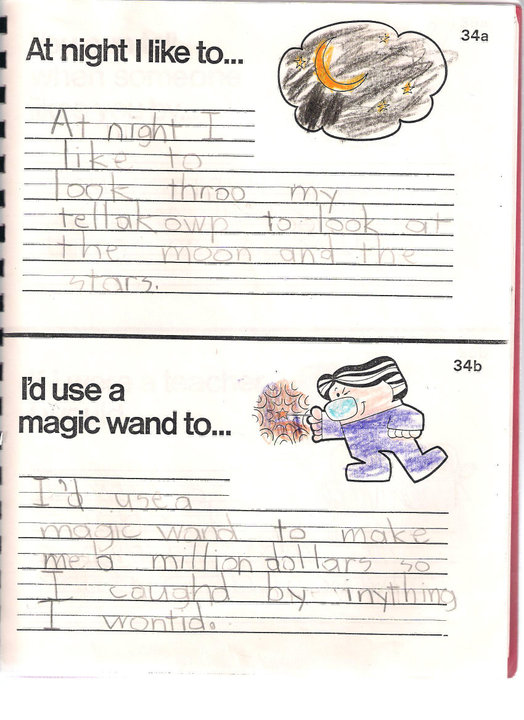 34a
At night I like to...
At night I
like to
look throo my
tellakowp to look at
the moon and the
stars.
34b
I'd use a
magic wand to...
I'd use a
magic wand to make
me a million dollars so
I caughd by inything
I wontid.